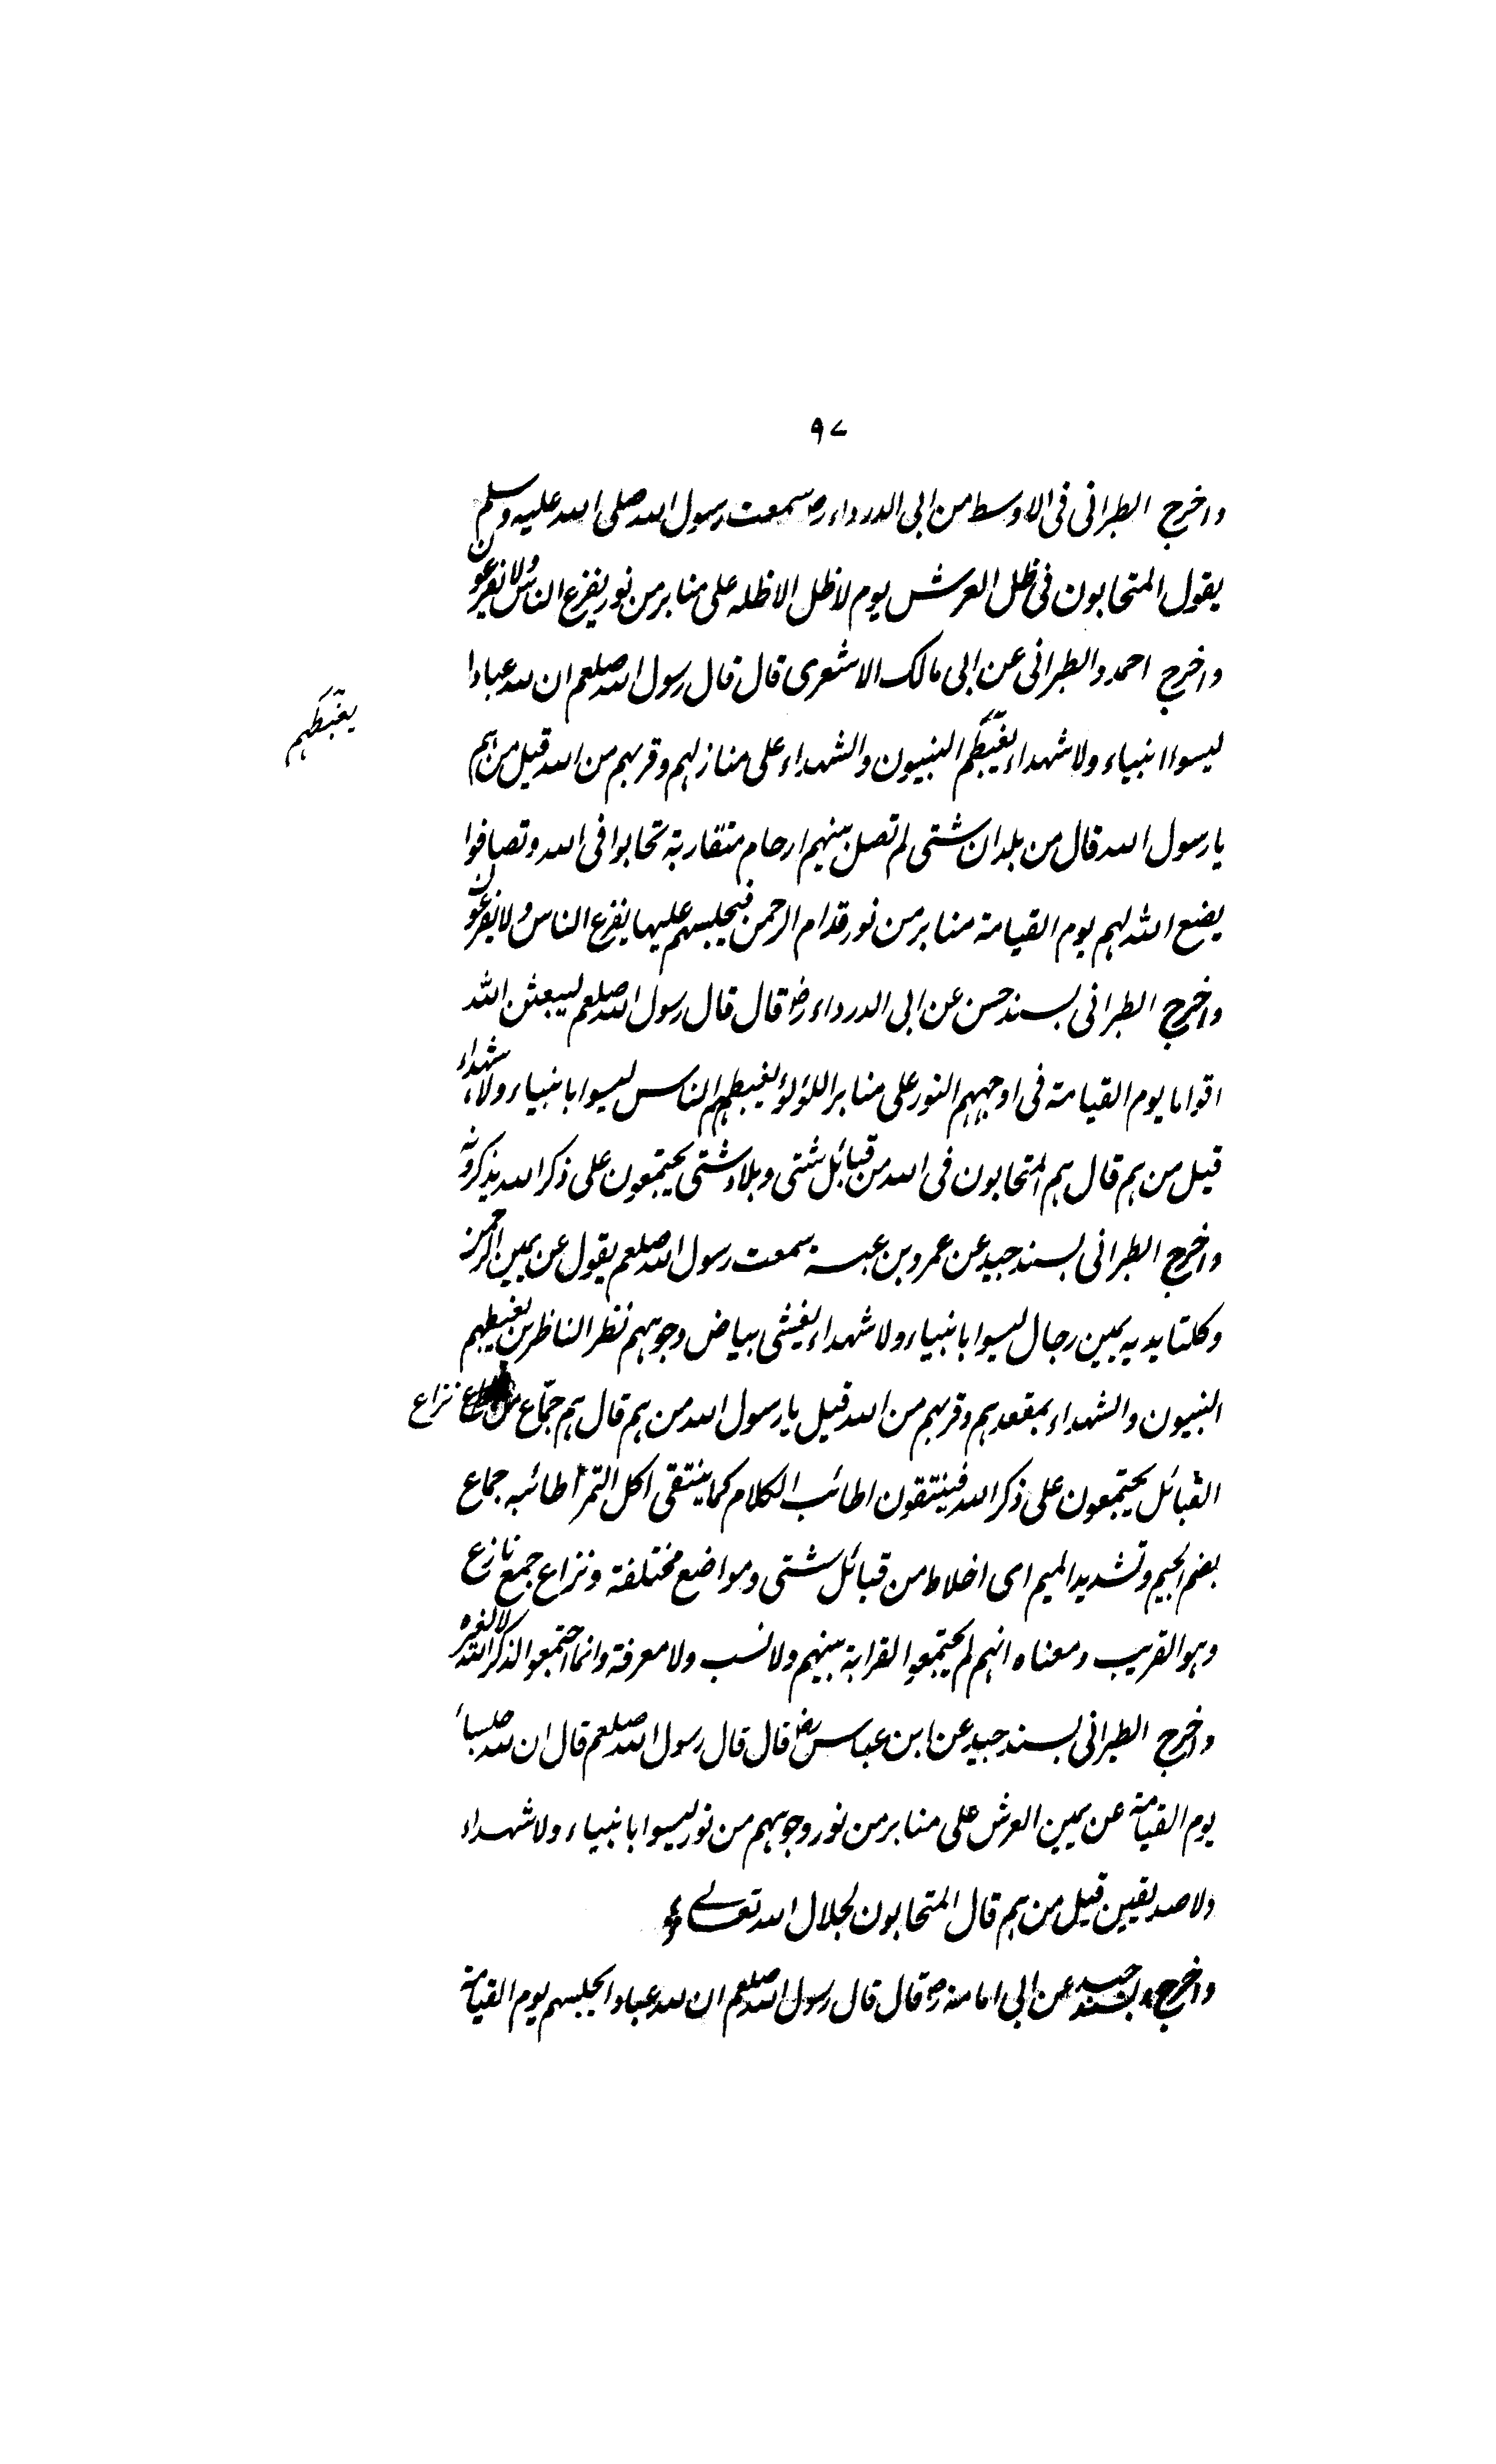 ٩٧
واخرج الطبرانی فی الاوسط من ابی الدرداء رض سمعت رسول الله صلی الله علیه وسلم
یقول المتحابون فی ظل العرش یوم لا ظل الا ظله علی منابر من نور یفزع الناس ولا یفزعون
واخرج احمد والطبرانی عن ابی مالک الاشعری قال قال رسول الله صلعم ان لله عبادا
لیسوا انبیاء ولا شهداء یغبطهم النبیون والشهداء علی منازلهم وقربهم من الله قیل من هم
یغبطهم
یا رسول الله قال من بلدان شتی لم تصل بینهم ارحام متقاربة تحابوا فی الله وتصافوا
یضع الله لهم یوم القیامة منابر من نور قدام الرحمن فیجلسهم علیها یفزع الناس ولا یفزعون
واخرج الطبرانی بسند حسن عن ابی الدرداء رض قال قال رسول الله صلعم لیبعثن الله
اقواما یوم القیامة فی اوجههم النور علی منابر اللؤلؤ یغبطهم الناس لیسوا بانبیاء ولا شهداء
قیل من هم قال هم المتحابون فی الله من قبائل شتی وبلاد شتی یجتمعون علی ذکر الله یذکرونه
واخرج الطبرانی بسند جید عن عمرو بن عبسة سمعت رسول الله صلعم یقول عن یمین الرحمن
وکلتا یدیه یمین رجال لیسوا بانبیاء ولا شهداء یغشی بیاض وجوههم نظر الناظرین یغبطهم
النبیون والشهداء بمقعدهم وقربهم من الله قیل یا رسول الله من هم قال هم جمّاع من نزاع
القبائل یجتمعون علی ذکر الله فینتقون اطائب الکلام کما ینتقی اکل التمر اطائبه جماع
بضم الجیم وتشدید المیم ای اخلاط من قبائل شتی ومواضع مختلفة ونزاع جمع نازع
وهو القریب ومعناه انهم لم یجتمعوا لقرابة بینهم ولا نسب ولا معرفة وانما اجتمعوا لذکر الله لا لغیره
واخرج الطبرانی بسند جید عن ابن عباس رض قال قال رسول الله صلعم قال ان لله جلساء
یوم القیامة عن یمین العرش علی منابر من نور وجوههم من نور لیسوا بانبیاء ولا شهداء
ولا صدیقین قیل من هم قال المتحابون لجلال الله تعالے
واخرج بسند جید عن ابی امامة رض قال قال رسول الله صلعم ان لله عبادا یجلسهم یوم القیامة